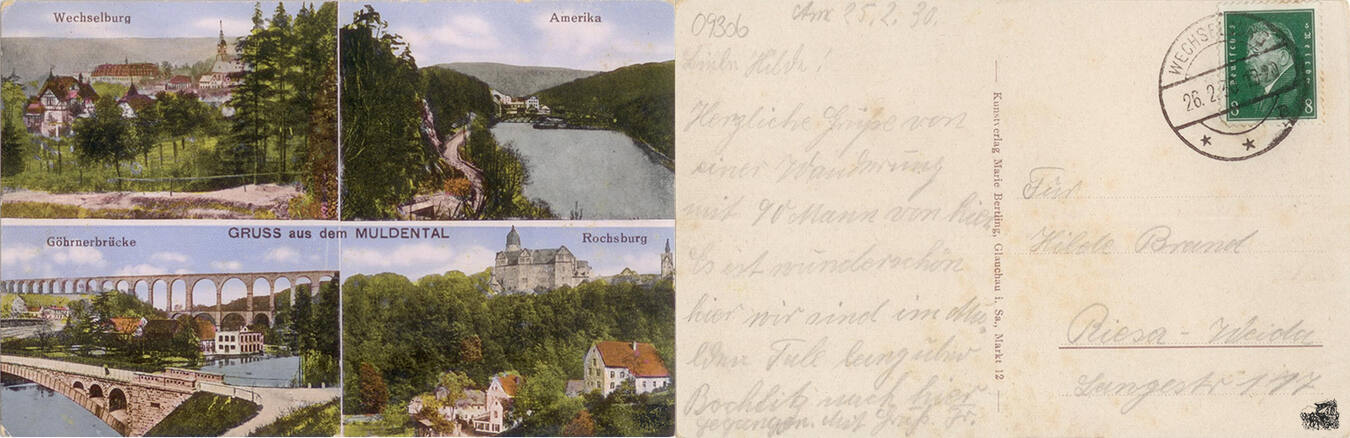 Wechselburg
Amerika
GRUSS aus dem MULDENTAL
Göhrnerbrücke
Rochsburg
09306
Am 25.2.30.
Liebe Hilde!
Herzliche Grüße von
einer Wanderung
mit 90 Mann von hier
Es ist wunderschön
hier wir sind im Mu
lden Tale lang über
Rochlitz nach hier
gegangen. Mit Gruß Fr.
Kunstverlag Marie Bertling, Glauchau i. Sa., Markt 12
WECHSEL
26.2.
8 8
Für
Hilde Brand
Riesa-Weida
Langestr 117